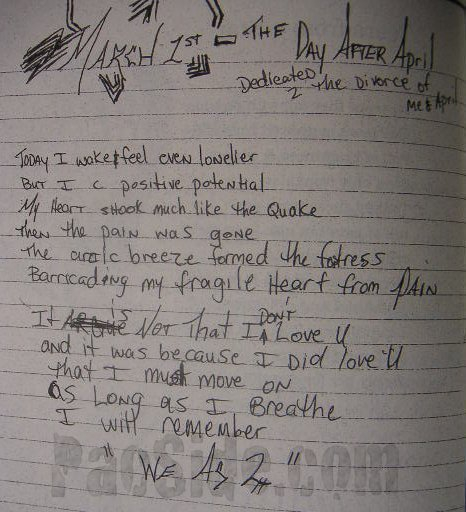 MARCH 1ST - THE DAY AFTER April
Dedicated 2 the Divorce of
Me & April
TODAY I wake & feel even lonelier
But I c positive potential
My Heart shook much like the Quake
then the PAIN WAS gone
The arctic breeze formed the fotress
Barricading my fragile Heart from PAIN
It is Not That I DON'T Love U
and it was because I DID love U
that I must move ON
as LONG as I Breathe
I will remember
"WE AS 2"
PacSide.com